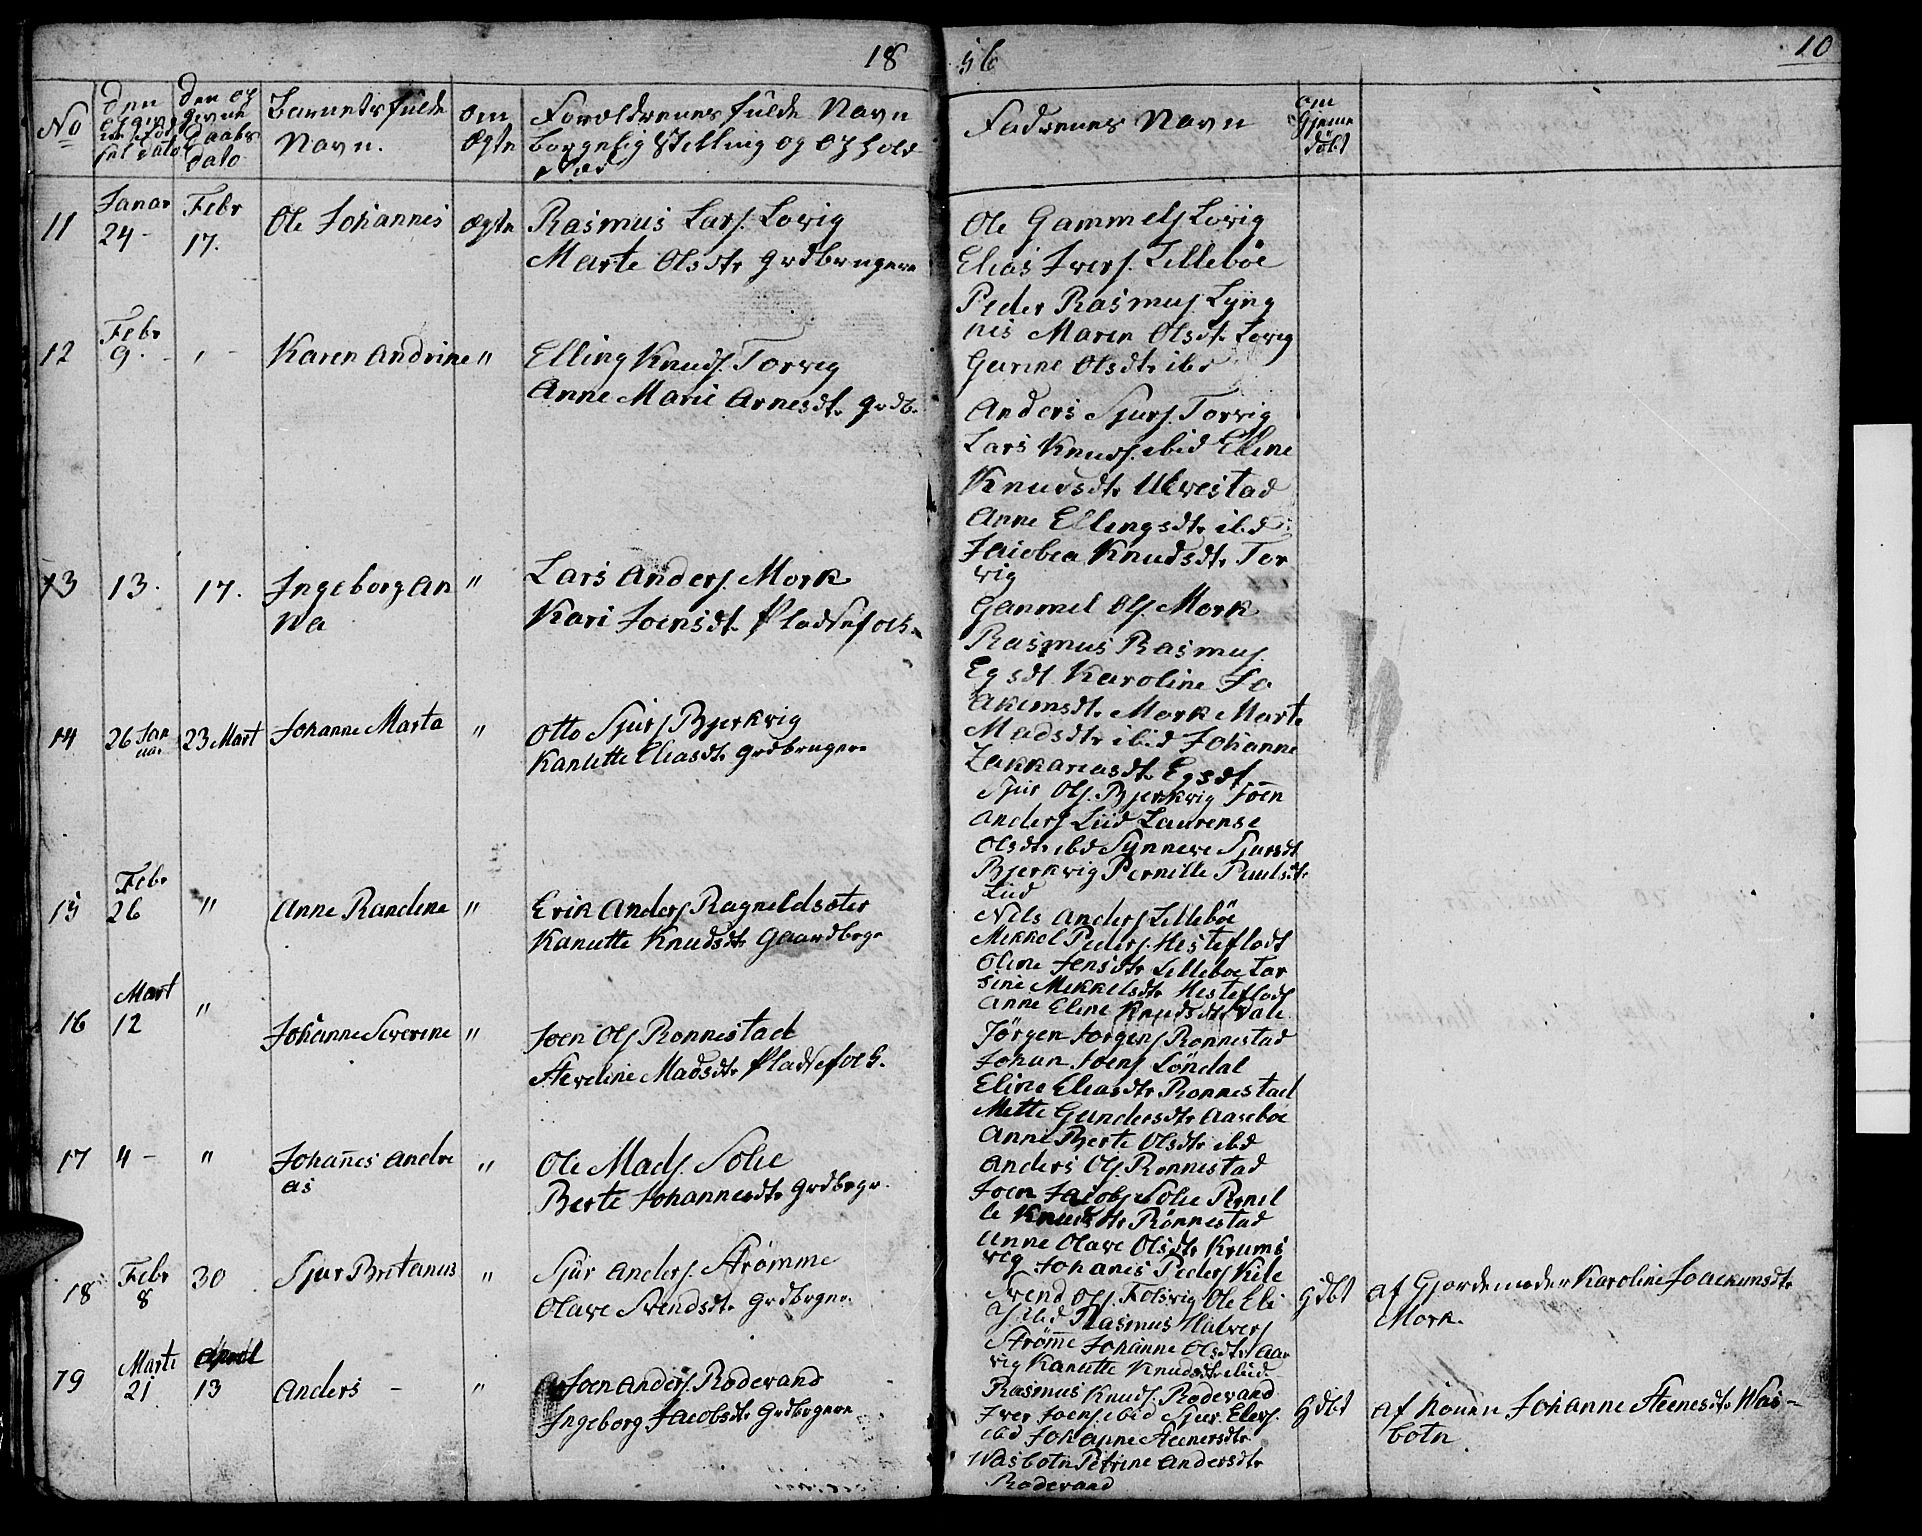 18
56
10
No
den opgivne Fødsel dato
den opgivne Daabs dato
Barnets fulde Navn.
om Ægte
Foreldrenes fulde Navn borgelig Stilling og Ophold sted
Fadrenes Navn
om Hjemedöbt
11
Janar 24 -
Febr 17.
Ole Johannes
Ægte
Rasmus Lars. Lovig
Marte Olsdtr grdbrugere
Ole Gammels Lovig
Elias Ivers. Lillebøe
Peder Rasmus Lyng
nes Maren Olsdtr Lovig
Gurine Olsdtr ibd
12
Febr 9. -
" -
Karen Andrine
"
Elling Knuds. Torvig
Anne Marie Arnesdtr grdb.
Anders Sjurs. Torvig
Lars Knuds. ibid Eline
Knudsdtr Ulvestad
Anne Ellingsdtr ibd
Jacobea Knudsdtr Tor
vig
13
13.
17.
Ingeborg An
na
"
Lars Anders. Mork
Kari Joensdtr Pladsefolk
Gammel Ols. Mork
Rasmus Rasmus.
Egsdt Karoline Jo
akimsdtr Mork Marte
Madsdtr ibid Johanne
Zakkariasdtr Egsdt
14
26 Jan
uar
23 Mart
Johanne Marta
"
Otto Sjurs Bjerkvig
Kanutte Eliasdtr grdbrugere
Sjur Ols. Bjerkvig Joen
Anders Liid Laurense
Olsdtr ibd Synneve Sjursdt
Bjerkvig Pernille Paulsdtr
Liid
15
Febr 26
"
Anne Randine
"
Erik Anders Ragneldsæter
Kanutte Knudsdtr Gaardbrgr
Nils Anders Lillebøe
Mikkel Peders. Hesteflodt
Oline Jensdtr Lilleboe Lar
sine Mikkelsdtr Hesteflodt
Anne Eline Knudsdtr Dale
16
Mart 12
"
Johanne Severine
"
Joen Ols Ronnestad
Steveline Madsdtr Pladsefolk.
Jørgen Jorgens Ronnestad
Johan Joens Løndal
Eline Eliasdtr Ronnestad
Mette Gundersdtr Aaseboe
Anne Berte Olsdtr ibd
17
" -
"
Johañes Andre
as
"
Ole Mads. Solie
Berte Johannesdtr Grdbrgr.
Anders Ols. Ronnestad
Joen Jacobs Solie Pernil
le Knudsdtr Rönnestad
Anne Olave Olsdtr Krums
vig Johanes Peders Kile
18
Febr 8
30
Sjur Britanus
"
Sjur Anders. Strömme
Olave Svendsdtr grdbrgre
Svend Ols. Folsvig Ole Eli
as. ibd Rasmus Halvers
Strøm̄e Johanne Olsdtr Aar
vig Kanutte Knudsdtr ibid
gdbt
af Gjordemoder Karoline Joachimsdtr
Mork.
19
Marts 21
April 13
Anders -
"
Joen Anders. Rodevand
Ingeborg Jacobsdtr Grdbrgere
Rasmus Knuds. Rodevand
Iver Joens. ibid Sjur Elers.
ibid Johanne Steenersdtr
Wasbotn Petrine Andersdtr
Rodevand
gdbt
af konen Johanne Steenesdtr Was-
botn.